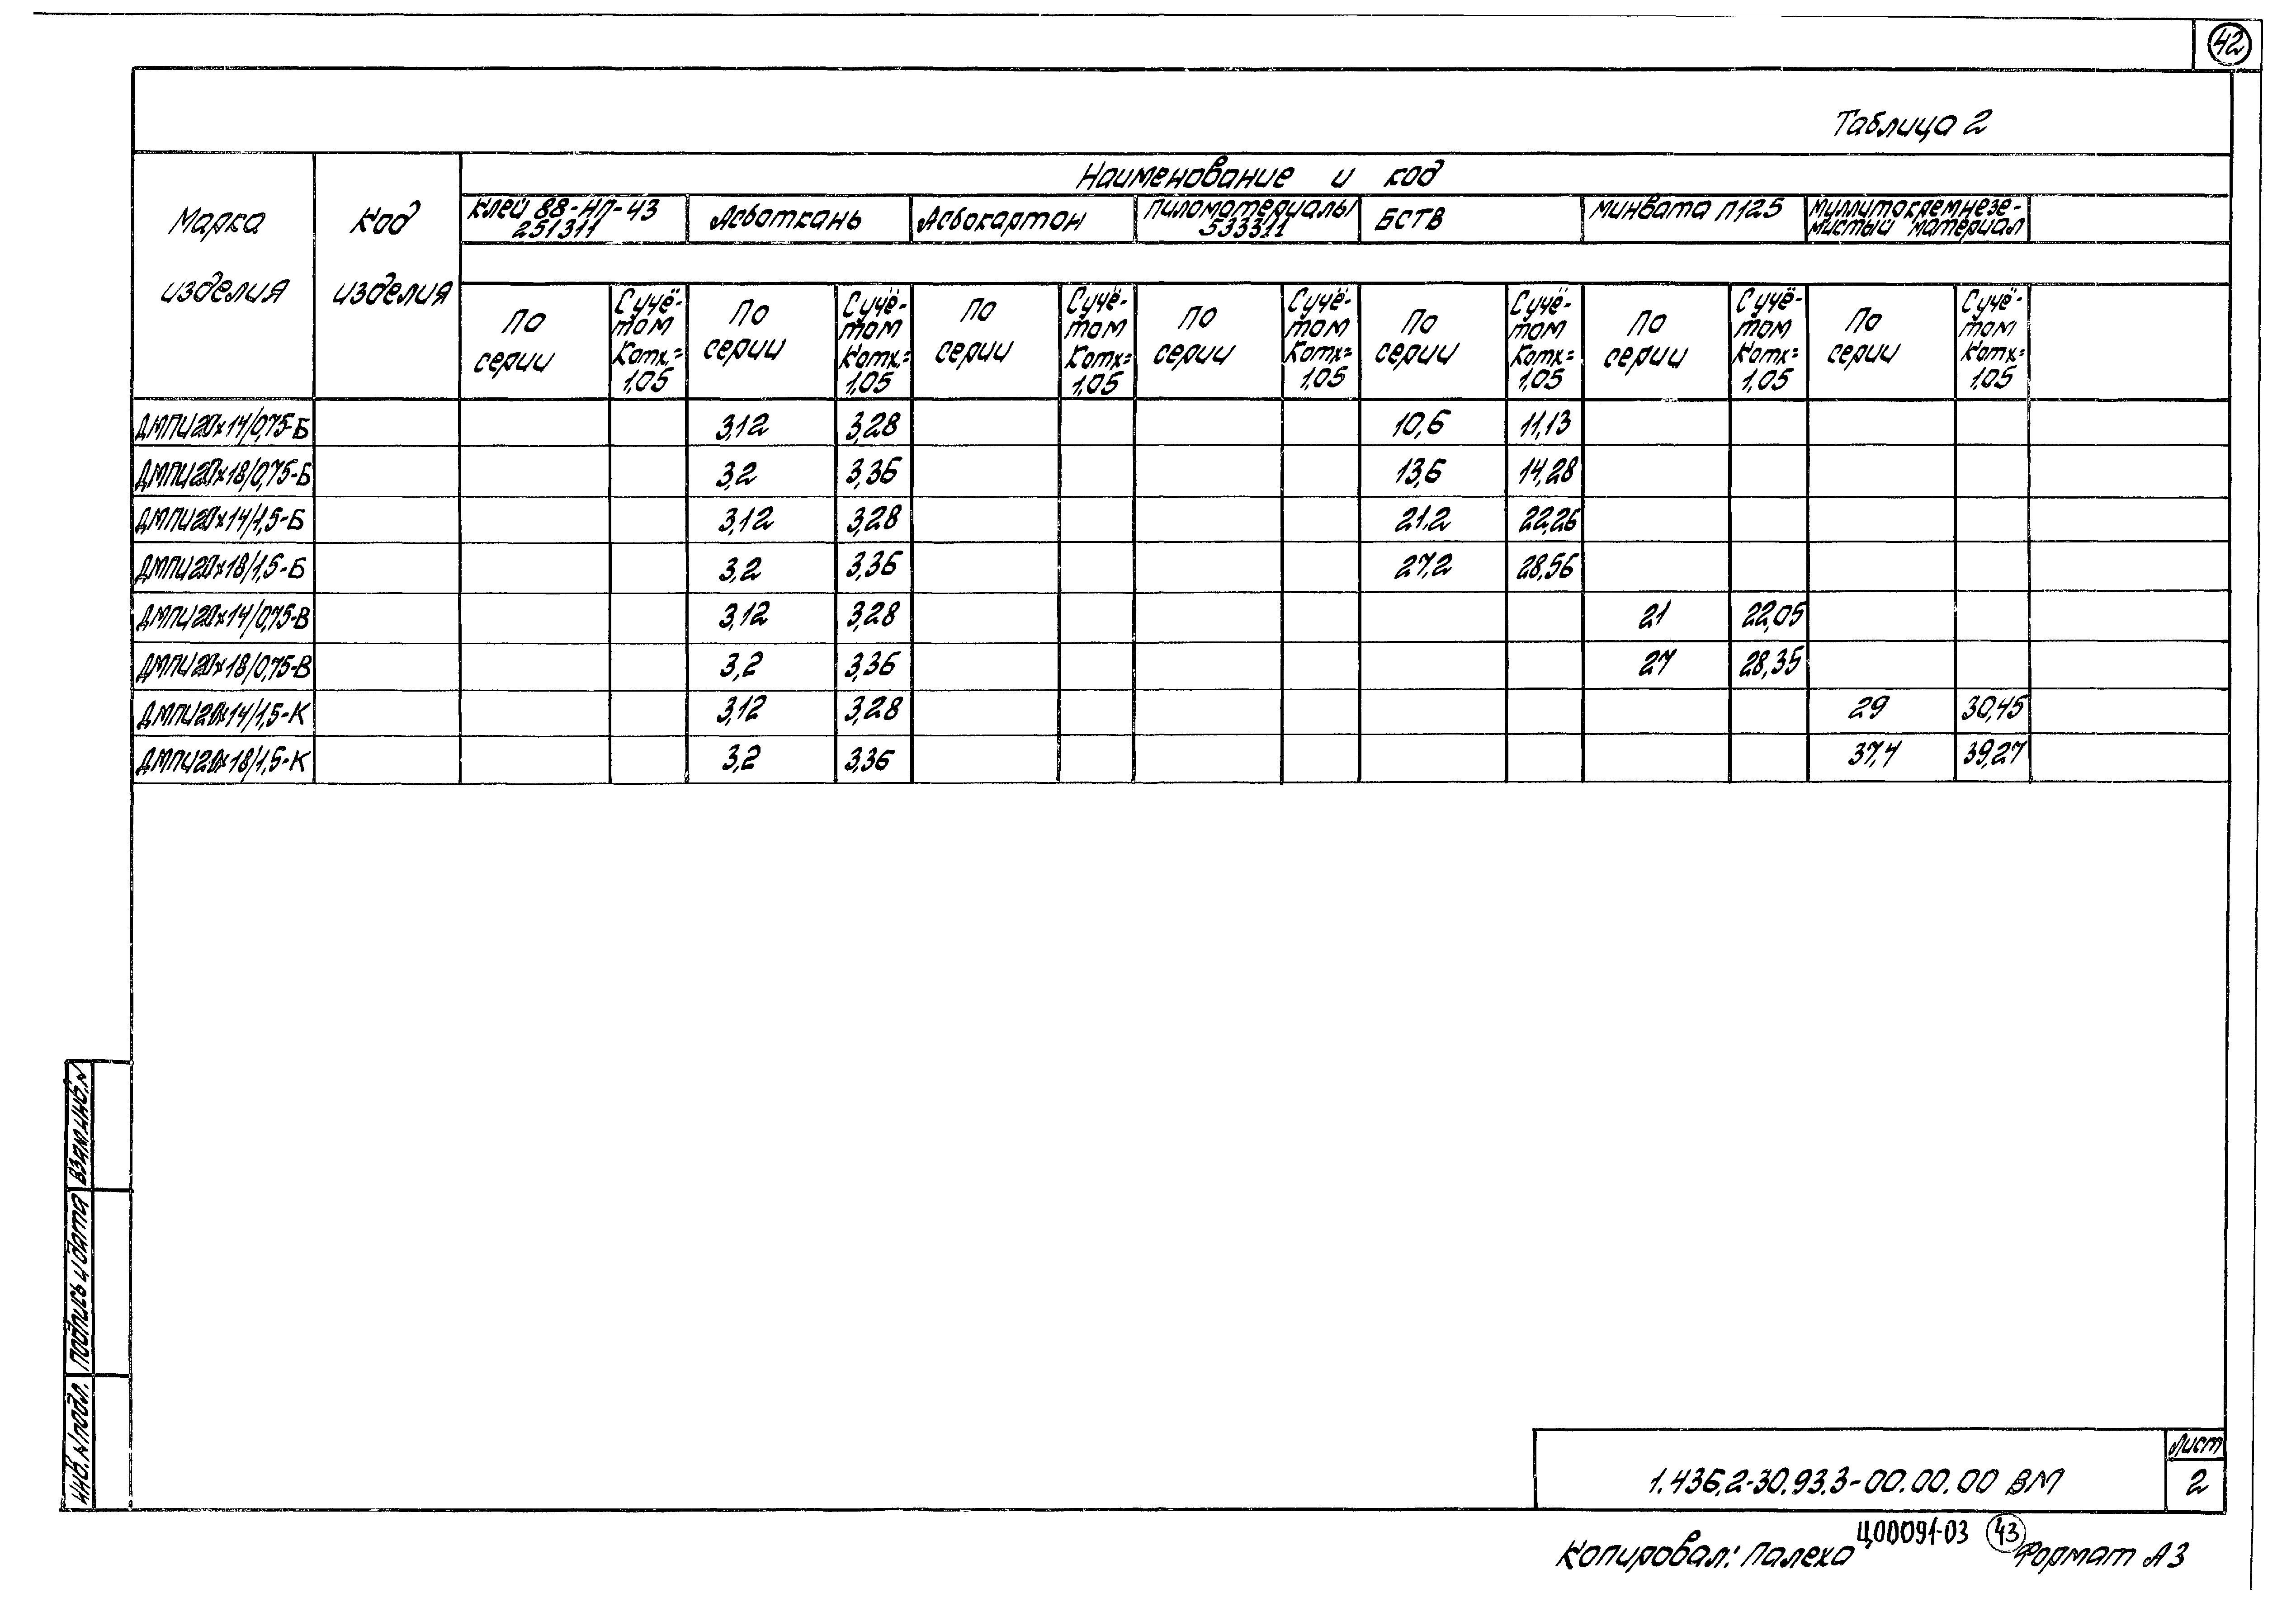 42
Таблица 2
Марка изделия
Код изделия
Наименование и код
Клей 88-НП-43 251311
Асботкань
Асбокартон
Пиломатериалы 533311
БСТВ
Минвата П125
Муллитокремнезе-
мистый материал
По серии
С учё-том Котх.= 1,05
По серии
С учё-том Котх.= 1,05
По серии
С учё-том Котх= 1,05
По серии
С учё-том Котх= 1,05
По серии
С учё-том Котх= 1,05
По серии
С учё-том Котх= 1,05
По серии
С учё-том Котх= 1,05
ДМПИ20х14/0,75-Б 3,12 3,28 10,6 11,13
ДМПИ20х18/0,75-Б 3,2 3,36 13,6 14,28
ДМПИ20х14/1,5-Б 3,12 3,28 21,2 22,26
ДМПИ20х18/1,5-Б 3,2 3,36 27,2 28,56
ДМПИ20х14/0,75-В 3,12 3,28 21 22,05
ДМПИ20х18/0,75-В 3,2 3,36 27 28,35
ДМПИ20х14/1,5-К 3,12 3,28 29 30,45
ДМПИ20х18/1,5-К 3,2 3,36 37,4 39,27
Взам.инв.N
Подпись и дата
Инв.N подл.
1.436.2-30.93.3-00.00.00 ВМ
Лист
2
Ц00091-03 43
Копировал: Палеха Формат А3